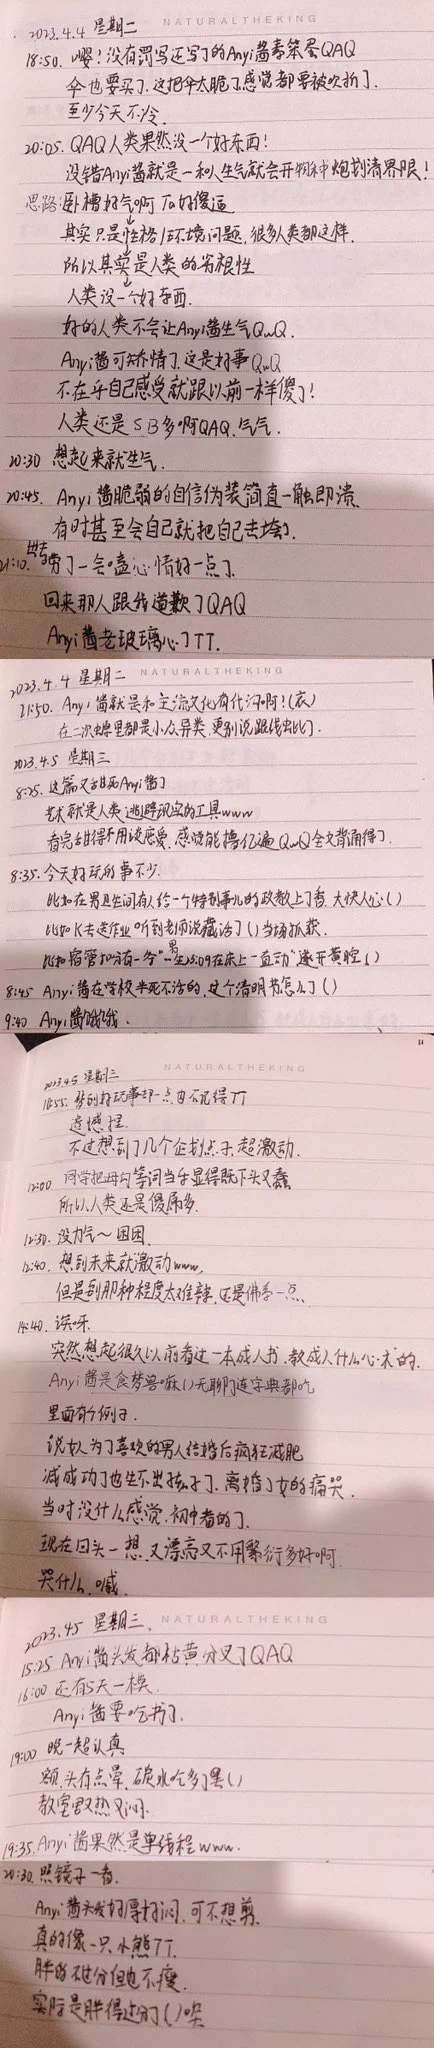 2023.4.4 星期二 NATURALTHEKING
18:50. 嘤！没有罚写还写了的Anyi酱青笨蛋QAQ
伞也要买了.这把伞太脆了感觉都要被吹折了.
至少今天不冷.
20:05. QAQ人类果然没一个好东西!
没错Anyi酱就是一和人生气就会开物种炮划清界限!
思路:卧槽好气啊 TA好傻逼
其实只是性格/环境问题,很多人类都这样.
所以其实是人类的劣根性
人类没一个好东西.
好的人类不会让Anyi酱生气QwQ.
Anyi酱可矫情了.这是好事QwQ
不在乎自己感受就跟以前一样傻了!
人类还是SB多啊QAQ.气气.
20:30 想起来就生气.
20:45. Anyi酱脆弱的自信伪装简直一触即溃
有时甚至会自己就把自己击垮了.
21:10. 出去了一会嗑心情好一点了.
回来那人跟我道歉了QAQ
Anyi酱老玻璃心了TT.
2023.4.4 星期二 NATURALTHEKING
21:50. Anyi酱就是和主流文化有代沟啊!(哀)
在二次螈里都是小众异类,更别说跟线出比了.
2023.4.5 星期三
8:25. 这篇又甜死Anyi酱了
艺术就是人类逃避现实的工具www
看完甜得不用谈恋爱.感觉能撸亿遍QwQ全文背诵得了.
8:35. 今天好玩的事不少.
比如在男卫生间有人给一个特别事儿的政教上了香.大快人心()
比如K去送作业听到老师说藏话了()当场抓获.
比如宿管扣分有一条“一男生5:09在床上一直动”遂开黄腔()
8:45 Anyi酱在学校半死不活的.这个清明书怎么了()
9:40 Anyi酱饿饿.
2023.4.5 星期三 NATURALTHEKING
11:55. 梦的好玩事却一点也不记得TT
遗憾捏.
不过想到了几个企划点子.超激动.
12:00 同学把母句等词当乐显得既下头又蠢
所以人类还是傻屌多.
12:30. 没力气~困困.
12:40. 想到未来就激动www.
但是到那种程度太难辣.还是佛系一点.
14:40. 诶呀
突然想起很久以前看过一本成人书.教成人什么心术的.
Anyi酱是食梦兽嘛()无聊了连字典都吃
里面有个例子.
说女人为了喜欢的男人结婚后疯狂减肥
减成功了也生不出孩子了.离婚了女的痛哭.
当时没什么感觉.初中看的了.
现在回头一想.又漂亮又不用繁衍多好啊.
哭什么.喊.
2023.4.5 星期三. NATURALTHEKING
15:25 Anyi酱头发都枯黄分叉了QAQ
16:00 还有5天一模.
Anyi酱要吃书了.
19:00 晚一超认真
额.头有点晕.碳水吃多了罢()
教室又热又闷.
19:35. Anyi酱果然是单线程www.
20:30. 照镜子一看.
Anyi酱头发好厚好闷.可不想剪
真的像一只小熊TT.
胖的不过分但也不瘦.
实际是胖得过分了()哭